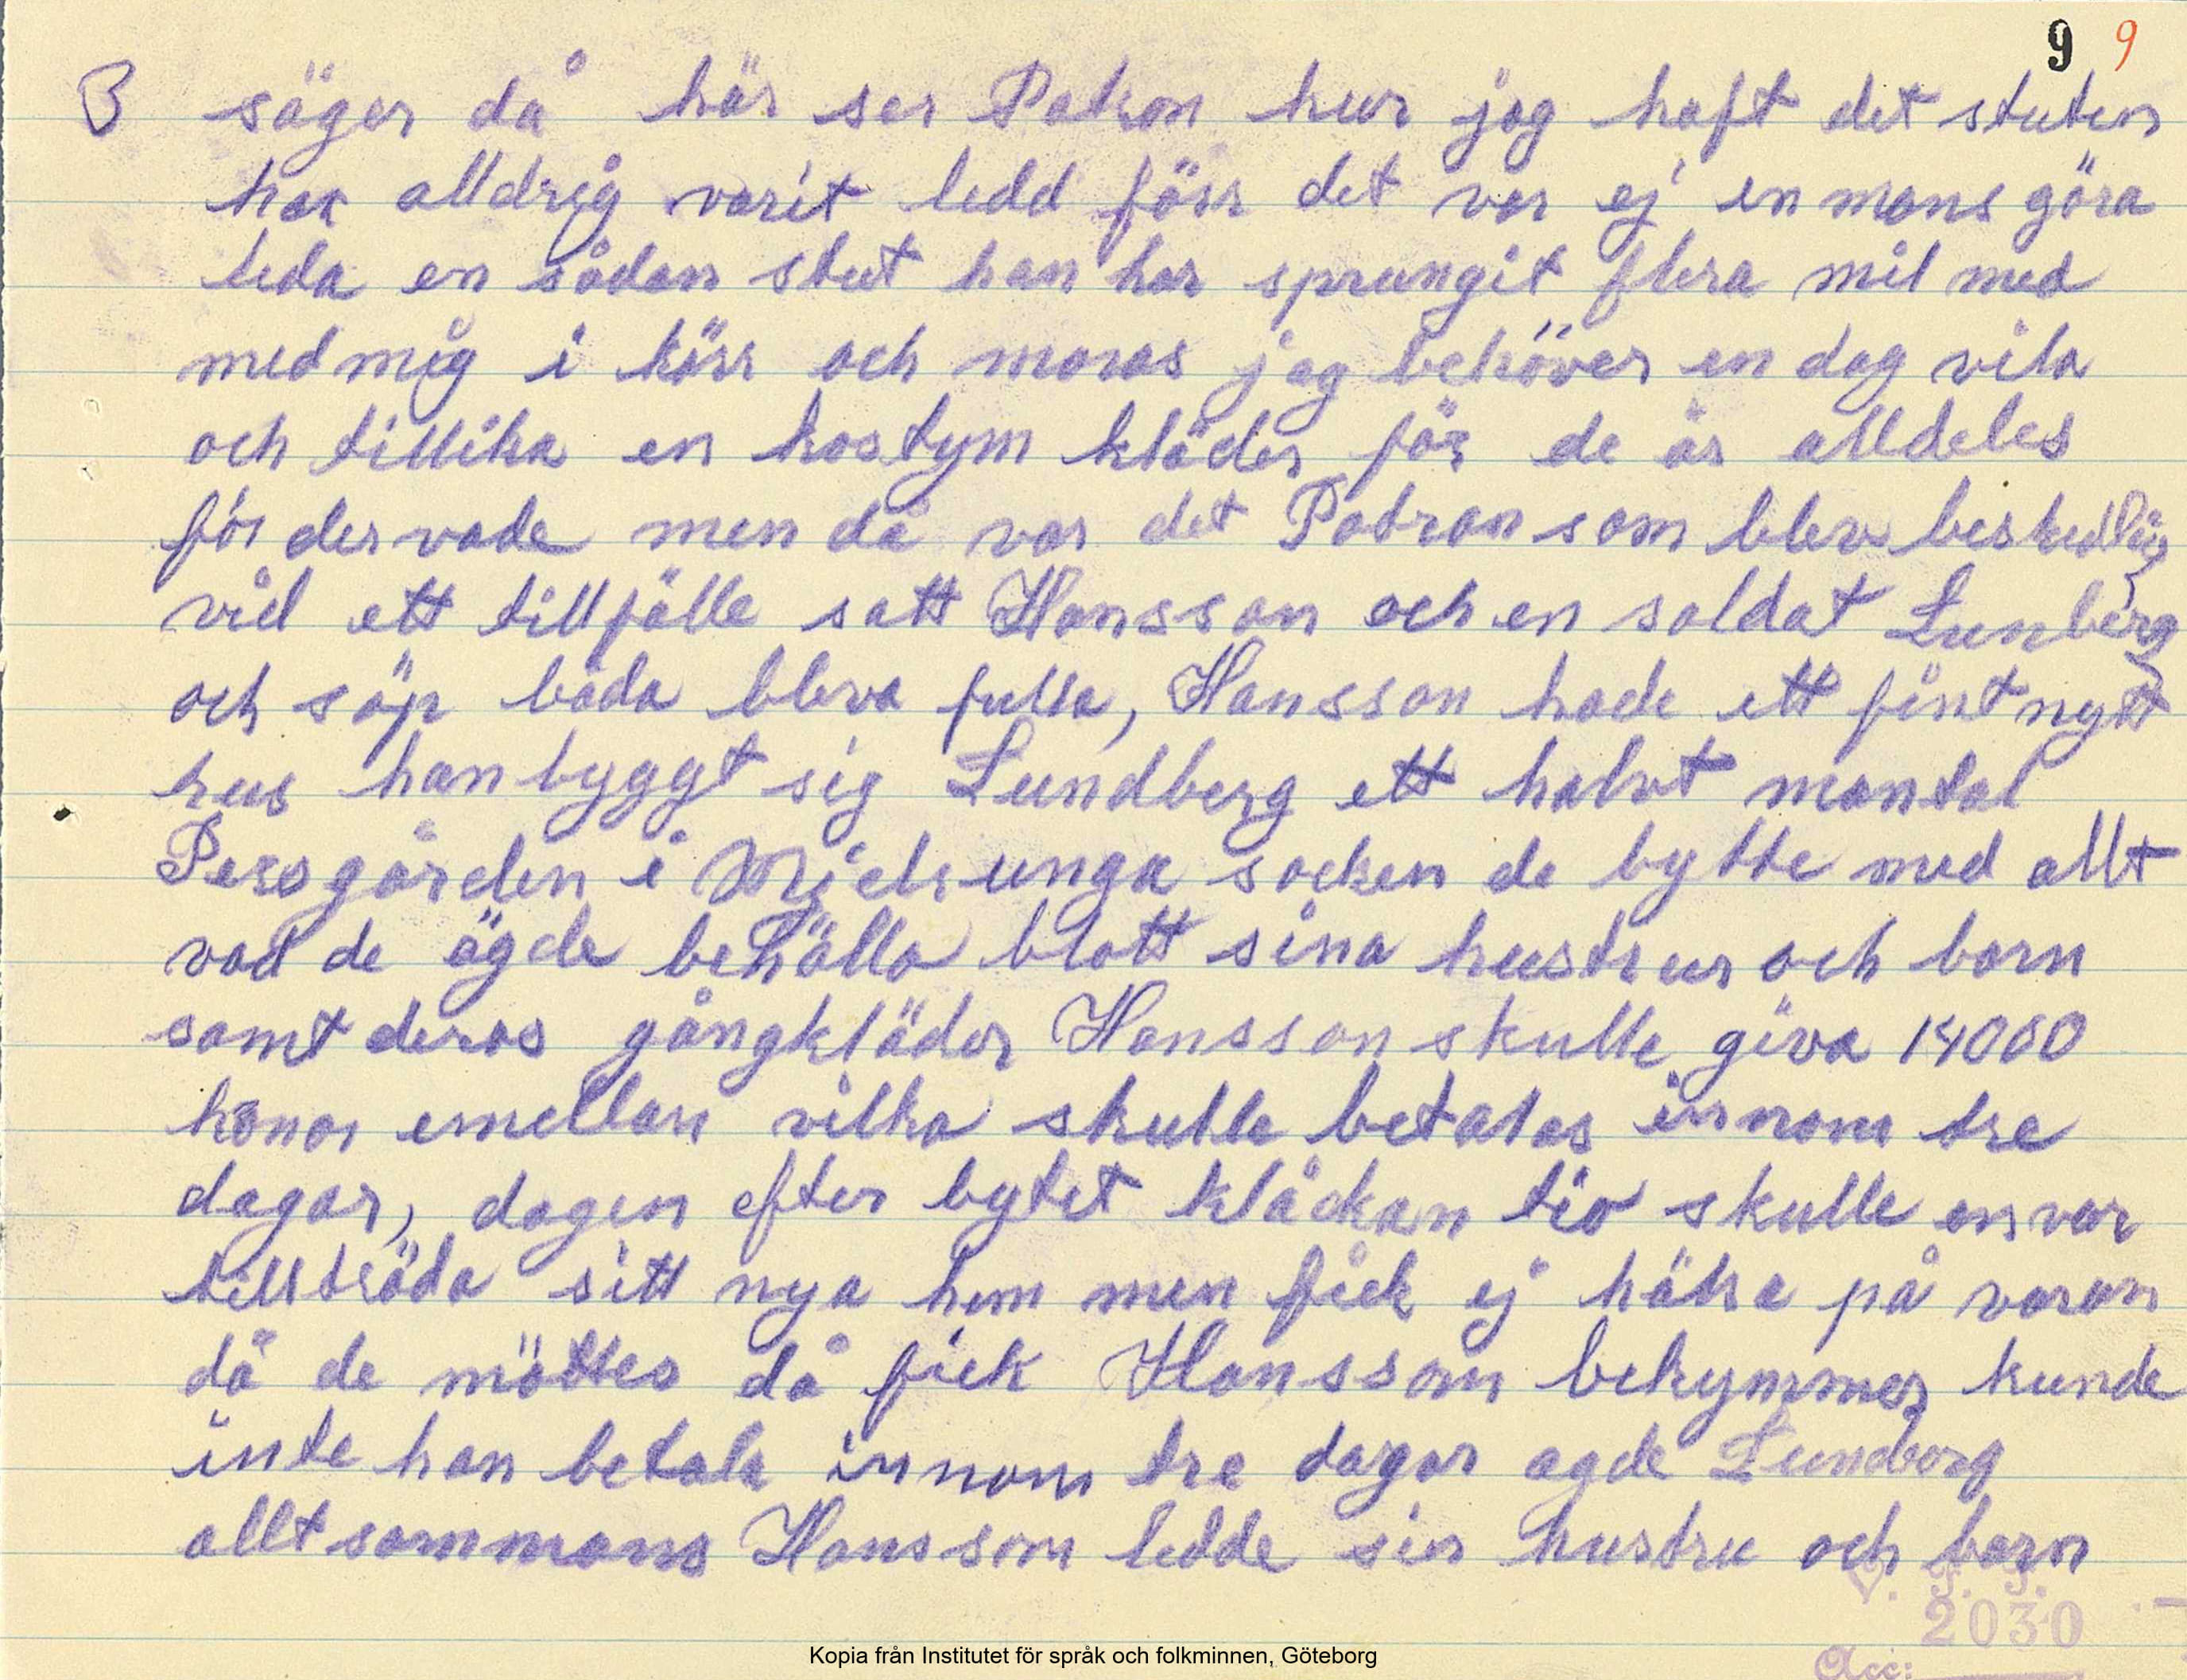 9 9
3 säger då här ser Patron hur jag haft det stuten
har alldrig varit ledd förr det var ej en mans göra
leda en sådan stut han har sprungit flera mil med
med mig i kärr och moras jag behöver en dag vila
och tillika en kostym kläder för de är alldeles
fördervade men då var det Patron som blev beskedlig
vid ett tillfälle satt Hansson och en soldat Lunberg
och söp båda bleva fulla, Hansson hade ett fint nytt
hus han byggt sig Lundberg ett halvt mantal
Persgården i Mjeldrunga socken de bytte med allt
vad de ägde behålla blott sina hustrur och barn
samt deras gångkläder Hansson skulle giva 14000
kronor emellan vilka skulle betalas innom tre
dagar, dagen efter bytet klåckan tio skulle envar
tillträda sitt nya hem men fick ej hälsa på varan
då de möttes då fick Hansson bekymmer kunde
inte han betala innom tre dagar agde Lundberg
alltsammans Hansson ledde sin hustru och barn
V. F. F.
2030
Acc:
Kopia från Institutet för språk och folkminnen, Göteborg